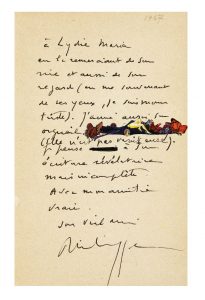 1957
à Lydie Maria
en te remerciant de son
rire et aussi de son
regard (en me souvenant
de ses yeux, je suis moins
triste). J'aime aussi son
orgueil
(elle n'est pas vaniteuse).
Je pense à son
écriture révélatrice
mais incomplète
Avec mon amitié
vraie.
son vieil ami